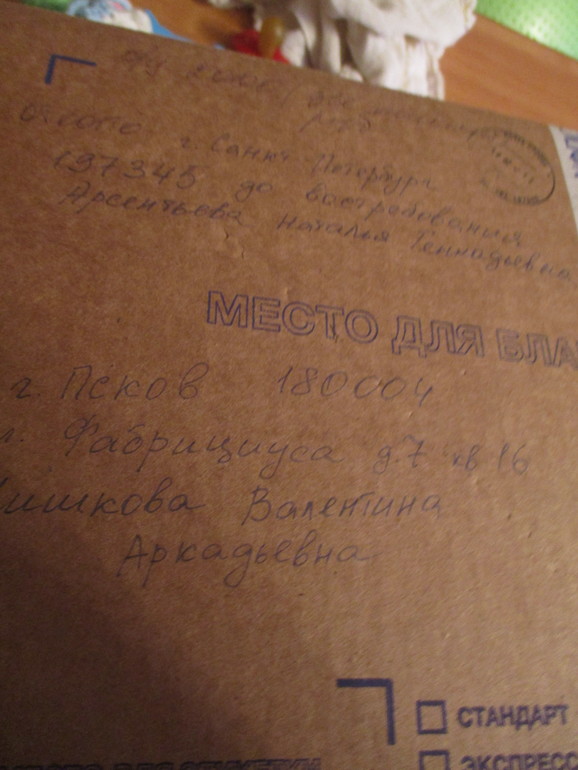 г. Санкт Петербург
197345 до востребования
Арсентьева Наталья Геннадьевна
МЕСТО ДЛЯ БЛА
г. Псков 180004
Фабрициуса д.7 кв 16
ишкова Валентина
Аркадьевна
СТАНДАРТ
ЭКСПРЕСС